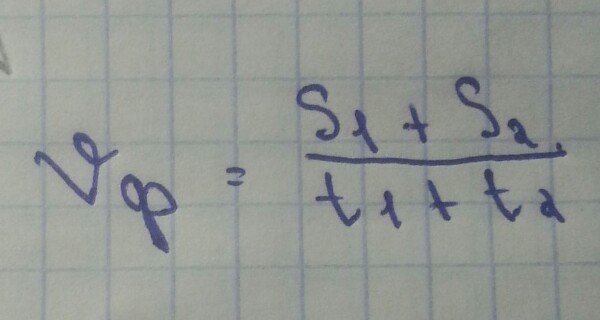 𝑣ср = (S₁ + S₂) / (t₁ + t₂)